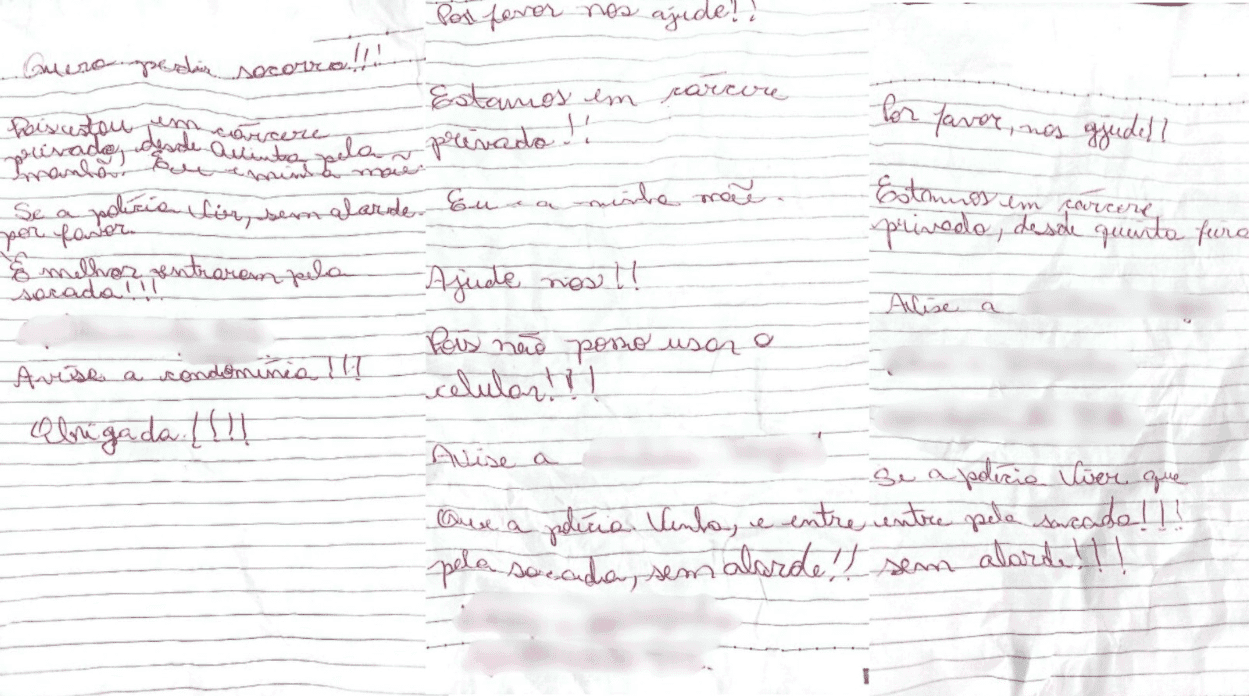 Quero pedir socorro!!!
Pois estou em cárcere
privado, desde Quinta pela
manhã. Eu e minha mãe.
Se a polícia vir, sem alarde.
por favor.
É melhor entrarem pela
sacada!!!
Avise a condominia!!!
Obrigada!!!!
Por favor nos ajude!!
Estamos em cárcere
privado!!
Eu e a minha mãe.
Ajude nos!!
Pois não posso usar o
celular!!!
Avise a
Que a polícia Venha, e entre
pela sacada, sem alarde!!
Por favor, nos ajude!!
Estamos em cárcere
privado, desde quinta feira
Avise a
Se a polícia Vier que
entre pela sacada!!!
sem alarde!!!